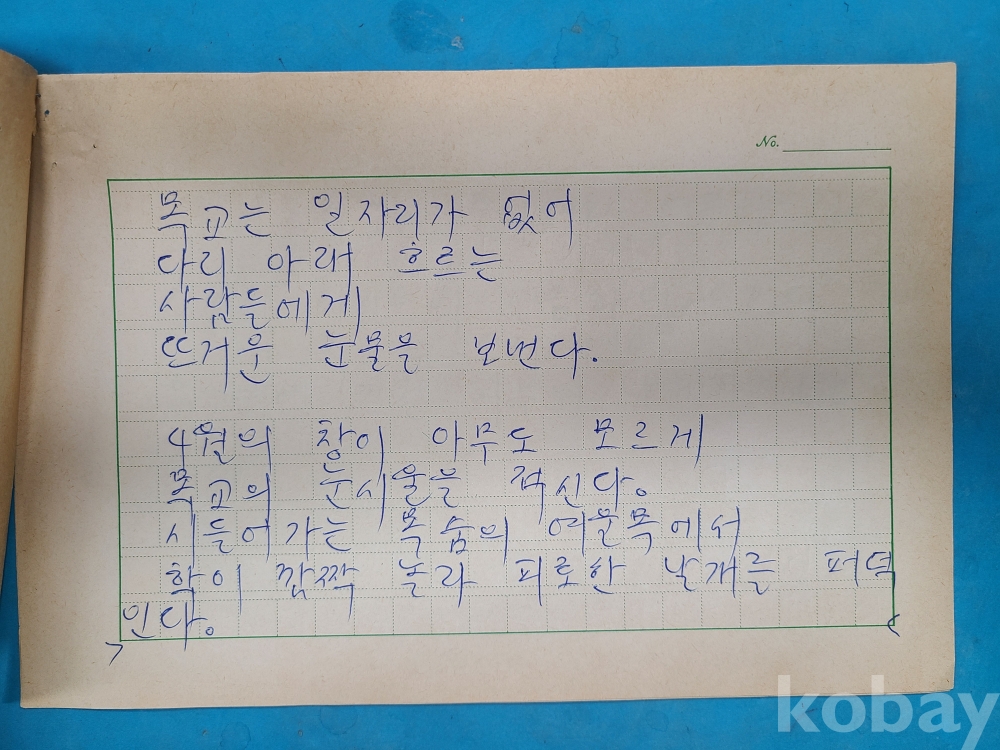 No.
목교는 일자리가 없어
다리 아래 흐르는
사람들에게
뜨거운 눈물을 보낸다.
4월의 창이 아무도 모르게
목교의 눈시울을 적신다.
시들어가는 목숨의 여울목에서
학이 깜짝 놀라 피로한 날개를 퍼덕
인다.
kobay